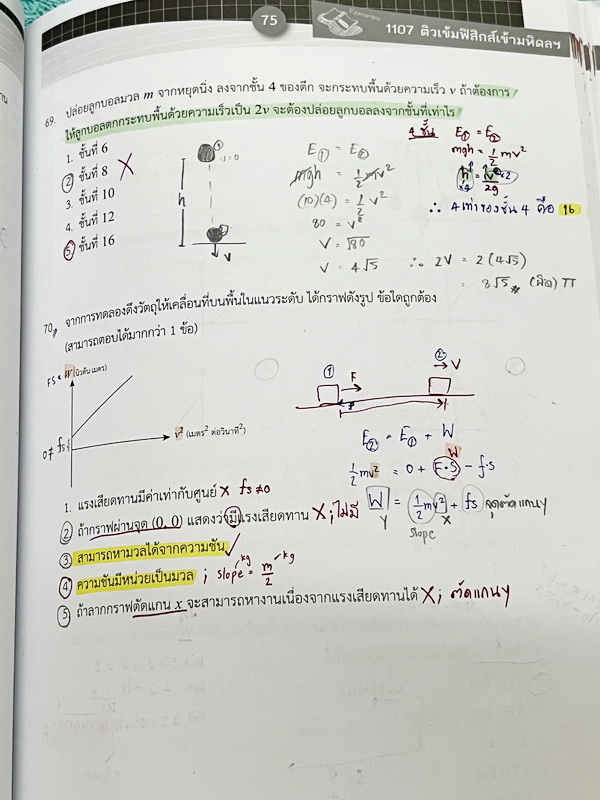 75
1107 ติวเข้มฟิสิกส์เข้ามหิดลฯ
69. ปล่อยลูกบอลมวล m จากหยุดนิ่ง ลงจากชั้น 4 ของตึก จะกระทบพื้นด้วยความเร็ว v ถ้าต้องการ
ให้ลูกบอลตกกระทบพื้นด้วยความเร็วเป็น 2v จะต้องปล่อยลูกบอลลงจากชั้นที่เท่าไร
1. ชั้นที่ 6
2. ชั้นที่ 8 X
3. ชั้นที่ 10
4. ชั้นที่ 12
5. ชั้นที่ 16
① u=0
h
②
v
E① = E②
mgh = 1/2 mv²
(10)(4) = 1/2 v²
80 = v²
v = √80
v = 4√5
4 ชั้น E① = E②
mgh = 1/2 mv²
h = v²/2g
x4 x2
∴ 4 เท่าของชั้น 4 คือ 16
∴ 2v = 2(4√5)
= 8√5 # (ผิด) TT
70. จากการทดลองดึงวัตถุให้เคลื่อนที่บนพื้นในแนวระดับ ได้กราฟดังรูป ข้อใดถูกต้อง
(สามารถตอบได้มากกว่า 1 ข้อ)
FS = W (นิวตัน เมตร)
0≠ fs
v² (เมตร² ต่อวินาที²)
① F ② V
E② = E① + W
W
1/2 mv² = 0 + F·S - f·s
W = 1/2 mv² + fs จุดตัดแกน y
y slope x
1. แรงเสียดทานมีค่าเท่ากับศูนย์ X fs ≠ 0
2. ถ้ากราฟผ่านจุด (0, 0) แสดงว่ามีแรงเสียดทาน X; ไม่มี
3. สามารถหามวลได้จากความชัน ✓
4. ความชันมีหน่วยเป็นมวล ; slope kg = m/2 kg
5. ถ้าลากกราฟตัดแกน x จะสามารถหางานเนื่องจากแรงเสียดทานได้ X; ตัดแกน y